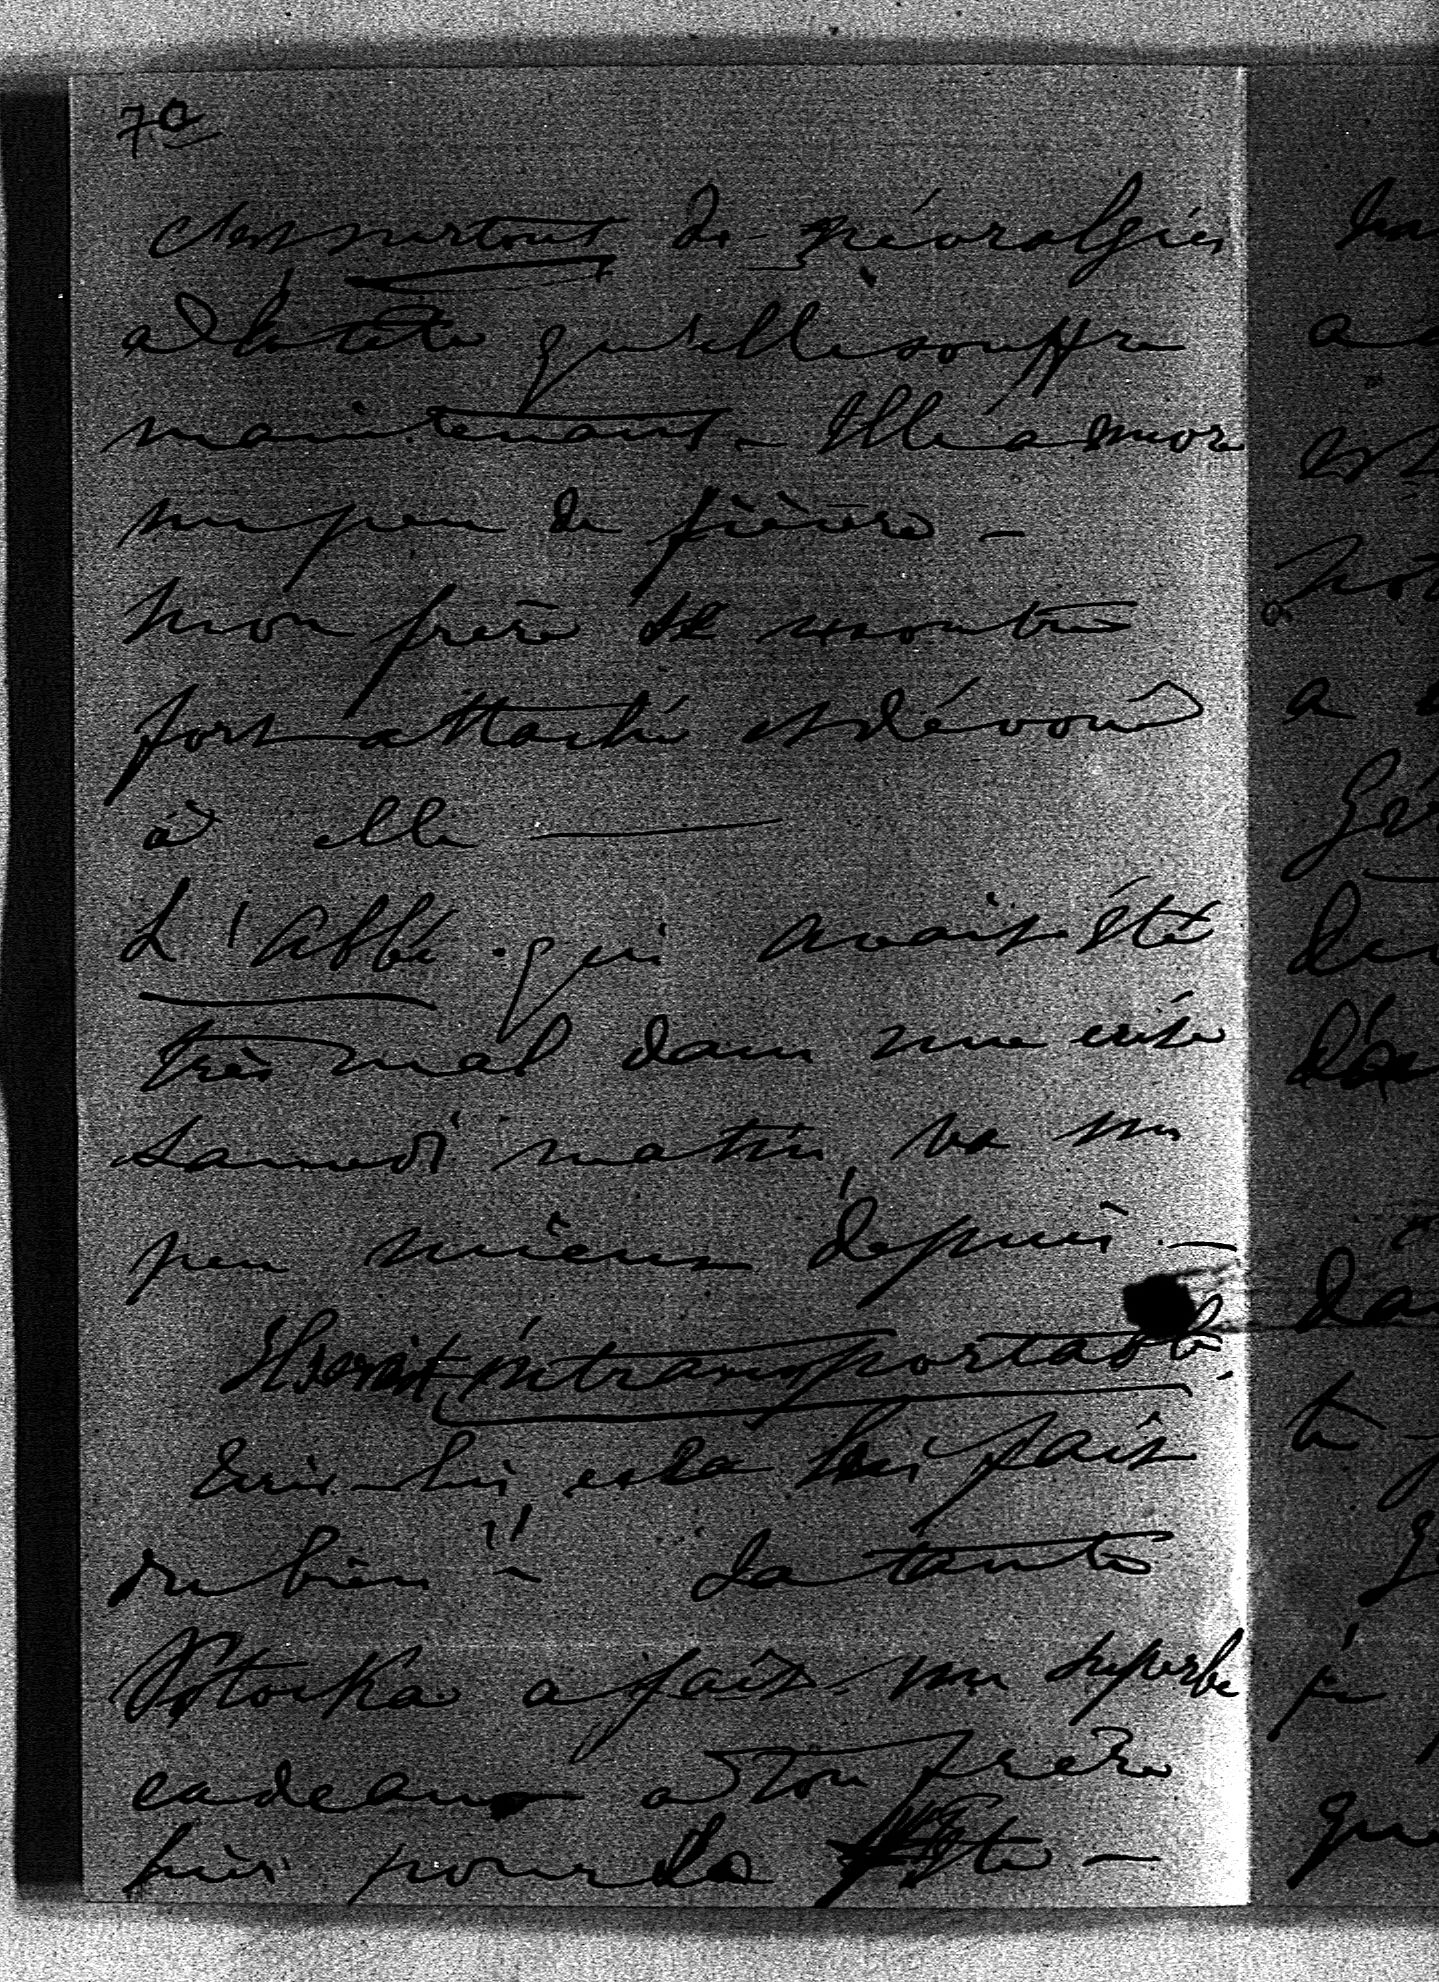 7º
c'est surtout de névralgies
à la tête qu'elle souffre
maintenant - Elle a encore
un peu de fièvre -
Mon frère se montre
fort attaché et dévoué
à elle —
L'Abbé qui avait été
très mal dans une crise
samedi matin, va un
peu mieux depuis -
Il serait intransportable.
cela lui fait
du bien" - La tante
Potocka a fait un superbe
cadeau à ton frère
hier pour sa fête -